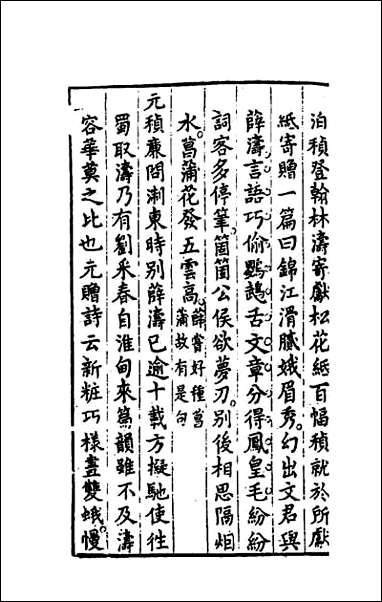 泊稹登翰林濤寄獻松花紙百幅稹就於所獻
紙寄贈一篇曰錦江滑膩娥眉秀幻出文君與
薛濤言語巧偷鸚鵡舌文章分得鳳皇毛紛紛
詞客多停筆箇箇公侯欲夢刀別後相思隔烟
水菖蒲花發五雲高薛嘗好種菖蒲故有是句
元稹亷問淛東時別薛濤已逾十載方擬馳使徃
蜀取濤乃有劉采春自淮甸來篇韻雖不及濤
容華莫之比也元贈詩云新粧巧様畫雙蛾慢